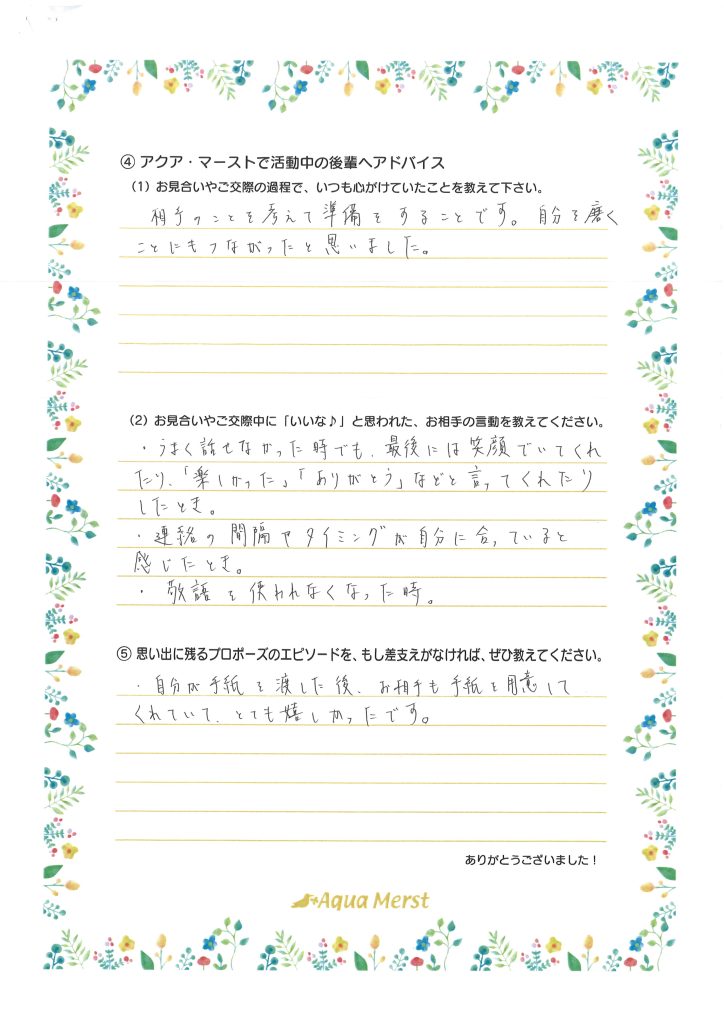 ④ アクア・マーストで活動中の後輩へアドバイス
（1）お見合いやご交際の過程で、いつも心がけていたことを教えて下さい。
相手のことを考えて準備をすることです。自分を磨く
ことにもつながったと思いました。
（2）お見合いやご交際中に「いいな♪」と思われた、お相手の言動を教えてください。
・うまく話せなかった時でも、最後には笑顔でいてくれ
たり、「楽しかった」「ありがとう」などと言ってくれたり
したとき。
・連絡の間隔やタイミングが自分に合っていると
感じたとき。
・敬語を使われなくなった時。
⑤ 思い出に残るプロポーズのエピソードを、もし差支えがなければ、ぜひ教えてください。
・自分が手紙を渡した後、お相手も手紙を用意して
くれていて、とても嬉しかったです。
ありがとうございました！
Aqua Merst